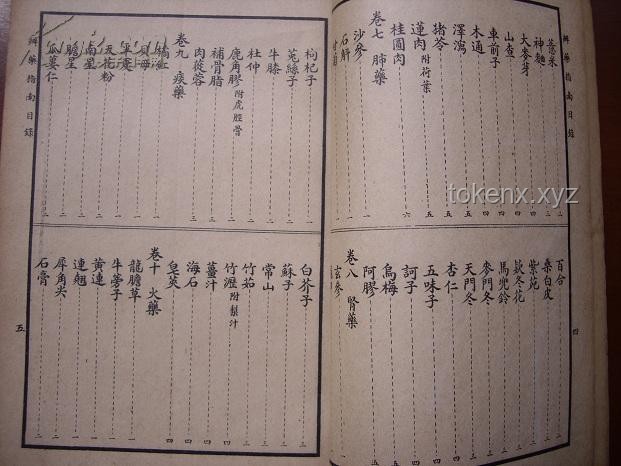 辨藥指南目錄
薏米
神麯
大麥芽 四
山查 四
車前子 四
木通 四
澤瀉 五
猪苓 五
蓮肉 附荷葉 五
桂圓肉 六
卷七 肺藥
沙參 一
石斛 一
百合
桑白皮
紫苑
款冬花
馬兜鈴
麥門冬
天門冬
杏仁
五味子
訶子
烏梅
阿膠
卷八 腎藥
玄參 一
四
枸杞子 一
菟絲子 一
牛膝 一
杜仲
鹿角膠 附虎脛骨
補骨脂
肉蓯蓉
卷九 痰藥
橘紅
貝母 一
半夏 一
天花粉 一
南星
膽星
瓜蔞仁
白芥子
蘇子
常山
竹茹
竹瀝 附梨汁 四
薑汁 四
海石 四
皂莢 四
卷十 火藥
龍膽草 一
牛蒡子 一
黃連 一
連翹
犀角尖
石膏
五
辨藥指南目錄
tokenx.xyz